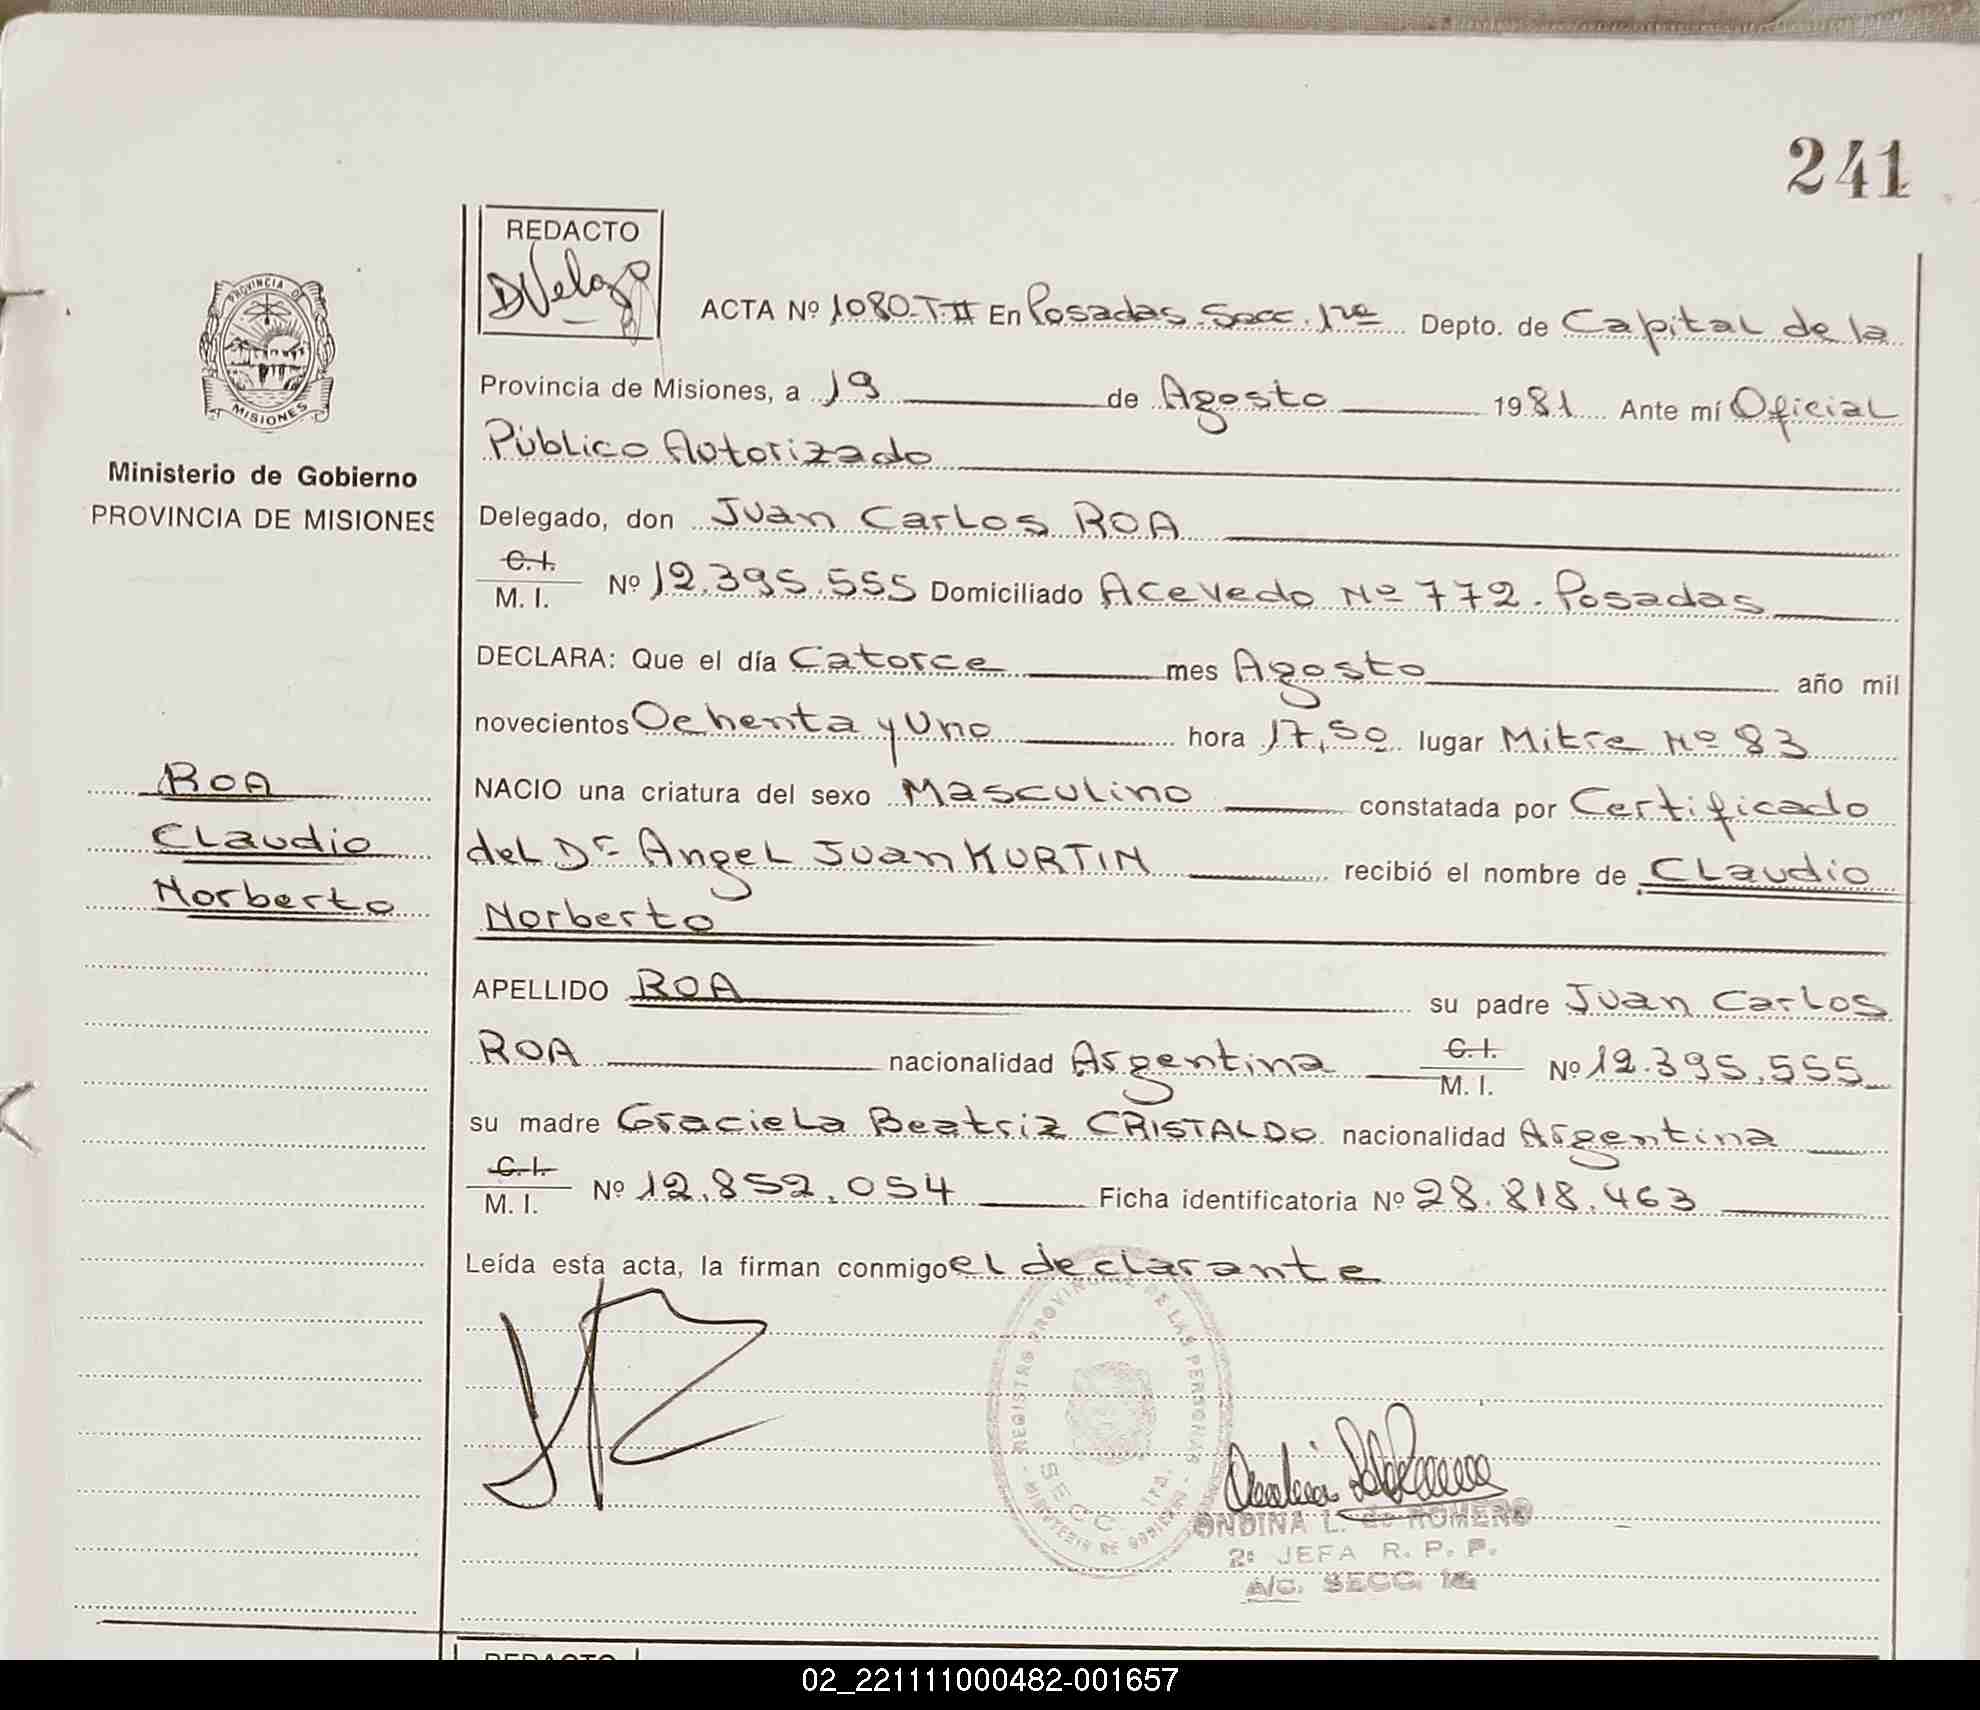 241
REDACTO
DVelozo
PROVINCIA DE
MISIONES
Ministerio de Gobierno
PROVINCIA DE MISIONES
ACTA Nº 1080-T-II En Posadas. Secc. 1ra Depto. de Capital de la
Provincia de Misiones, a 19 de Agosto 1981 Ante mí Oficial
Público Autorizado
Delegado, don Juan Carlos ROA
C.I.
M. I. Nº 12.395.555 Domiciliado Acevedo Nº 772. Posadas
DECLARA: Que el día Catorce mes Agosto año mil
novecientos Ochenta y Uno hora 17,50 lugar Mitre Nº 83
NACIO una criatura del sexo Masculino constatada por Certificado
del Dr Angel Juan KURTIN recibió el nombre de Claudio
Norberto
ROA
Claudio
Norberto
APELLIDO ROA su padre Juan Carlos
ROA nacionalidad Argentina C.I.
M. I. Nº 12.395.555
su madre Graciela Beatriz CRISTALDO nacionalidad Argentina
C.I.
M. I. Nº 12.852.054 Ficha identificatoria Nº 28.818.463
Leída esta acta, la firman conmigo el declarante
REGISTRO PROVIN DE LAS PERSONAS
MINISTERIO DE GOBIERNO
SECC. 1ra.
ONDINA L. de ROMERO
2ª JEFA R. P. P.
A/C. SECC. 1ª
REDACTO
02_221111000482-001657